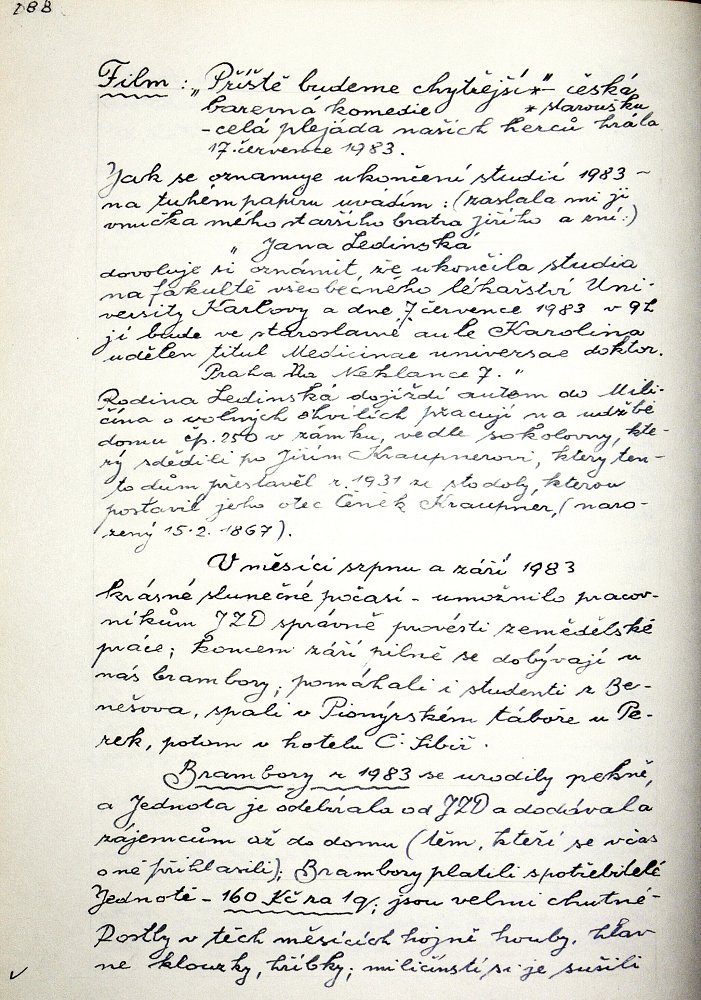 288
Film: „Příště budeme chytřejší*" – česká
barevná komedie * staroušku
– celá plejáda našich herců hrála
17. července 1983.
Jak se oznamuje ukončení studií 1983 –
na tuhém papíru uvádím: (zaslala mi ji
vnučka mého staršího bratra Jiřího a zní:)
„Jana Ledinská
dovoluje si oznámit, že ukončila studia
na fakultě všeobecného lékařství Uni-
versity Karlovy a dne 7. července 1983 v 9h
jí bude ve staroslavné aule Karolina
udělen titul Medicinae universae doktor.
Praha Na Neklance 7."
Rodina Ledinská dojíždí autem do Mili-
čína o volných chvílích pracují na údržbě
domu čp. 250 v zámku, vedle sokolovny, kte-
rý sdědili po Jiřím Kraupnerovi, který ten-
to dům přestavěl r. 1931 ze stodoly, kterou
postavil jeho otec Čeněk Kraupner, (naro-
zený 15.2. 1867).
V měsíci srpnu a září 1983
krásné slunečné počasí – umožnilo pracov-
níkům JZD správně provésti zemědělské
práce; koncem září pilně se dobývají u
nás brambory; pomáhali i studenti z Be-
nešova, spali v Pionýrském táboře u Pe-
rek, potom v hotelu Č. Sibiř.
Brambory r 1983 se urodily pěkně,
a Jednota je odebírala od JZD a dodávala
zájemcům až do domu (těm, kteří se včas
o ně přihlásili); Brambory platili spotřebitelé
Jednotě – 160 Kč za 1q; jsou velmi chutné –
Rostly v těch měsících hojně houby, hlav-
ně klouzky, hříbky; miličínští si je sušili